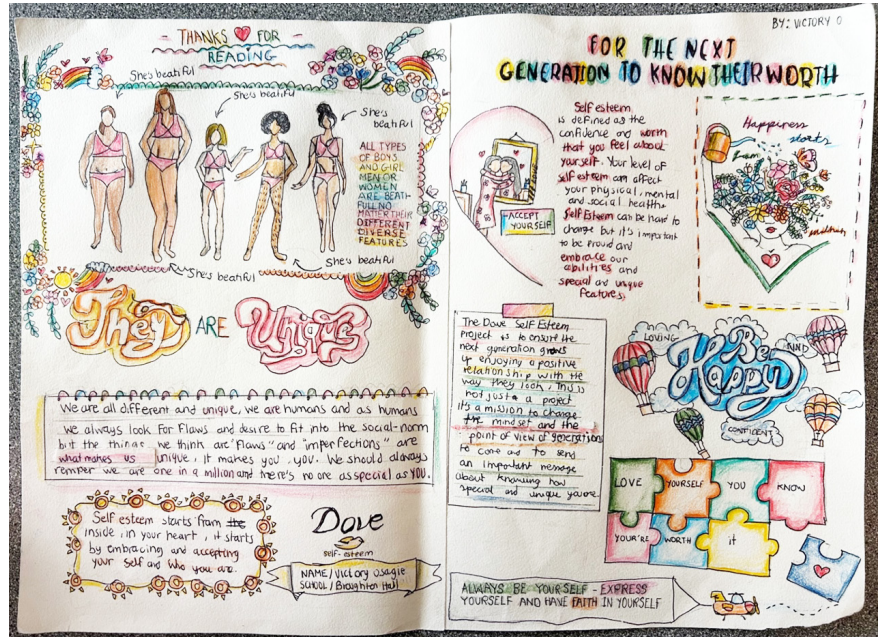 THANKS FOR
READING
She's beatiful
She's beatiful
She's beatiful
ALL TYPES
OF BOYS
AND GIRL
MEN OR
WOMEN
ARE BEATI-
FULL NO
MATTER THEIR
DIFFERENT
DIVERSE
FEATURES
She's beatiful
She's beatiful
They ARE Unique
We are all different and unique, we are humans and as humans
we always look for flaws and desire to fit into the social-norm
but the things we think are "flaws" and "imperfections" are
what makes us unique, it makes you, you. We should always
remper we are one in a million and there's no one as special as YOU.
Self esteem starts from the
inside, in your heart, it starts
by embracing and accepting
your self and who you are.
Dove
self-esteem
NAME/Victory Osagie
SCHOOL/Broughton Hall
BY: VICTORY O
FOR THE NEXT
GENERATION TO KNOW THEIR WORTH
Self esteem
is defined as the
confidence and worth
that you feel about
yourself. Your level of
self esteem can affect
your physical, mental
and social health.
Self Esteem can be hard to
change but it's important
to be proud and
embrace our
abilities and
special and unique
features.
ACCEPT
YOURSELF
Happiness
starts
from
within
The Dove Self Esteem
project is to ensure the
next generation grows
up enjoying a positive
relationship with the
way they look. This is
not just a project
it's a mission to change
the mindset and the
point of view of generations
to come and to send
an important message
about knowing how
special and unique you are
LOVING
Be
Happy
KIND
CONFIDENT
LOVE YOURSELF YOU KNOW
YOUR'RE WORTH it
ALWAYS BE YOURSELF - EXPRESS
YOURSELF AND HAVE FAITH IN YOURSELF